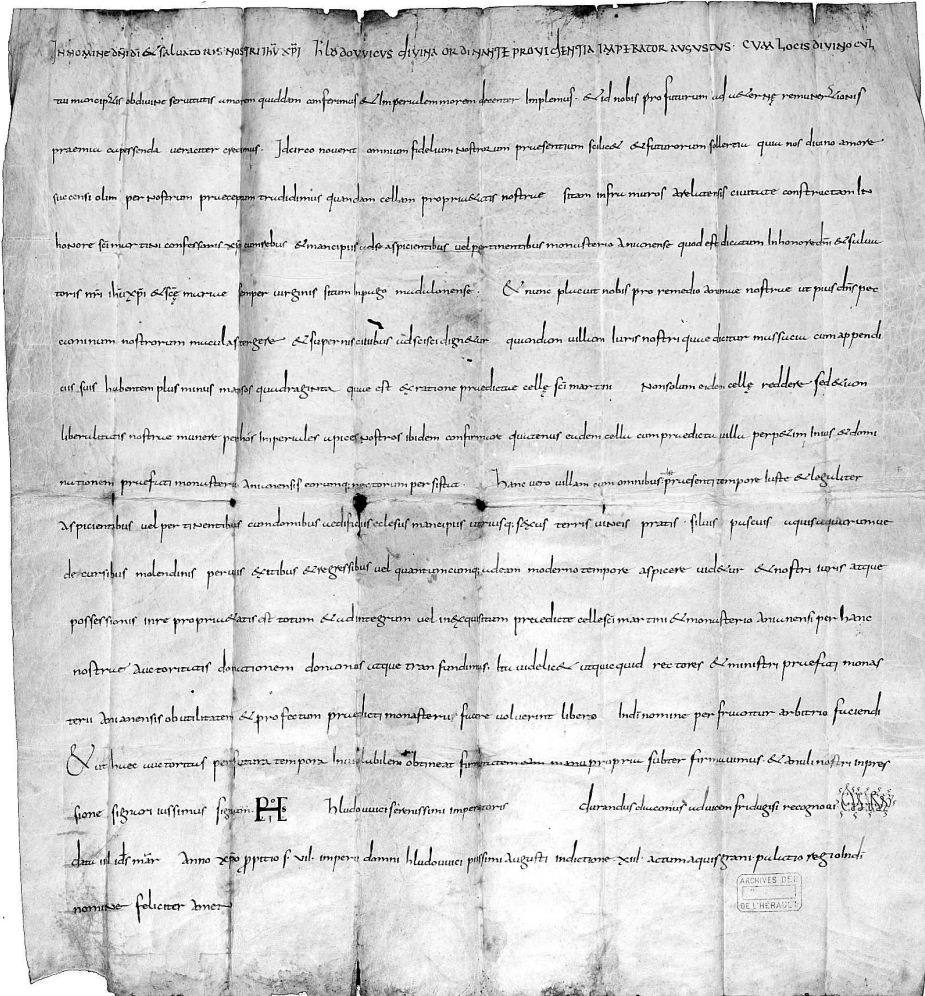 IN NOMINE DNI DI & SALVATORIS NOSTRI IHU XPI HLUDOVVICUS DIVINA ORDINANTE PROVIDENTIA IMPERATOR AUGUSTUS CUM LOCIS DIVINO CUL
tui mancipatis ob divine servitutis amorem quiddam conferimus & Imperialem morem decenter Implemus & id nobis profuturum ad aeterne remunerationis
praemia capessenda veraciter credimus Idcirco noverit omnium fidelium nostrorum praesentium scilic& & futurorum sollertia quia nos divino amore
succensi olim per nostrum praeceptum tradidimus quandam cellam propri&atis nostrae sitam infra muros arelatensis civitate constructam In
honore sci martini confessoris xpi cum rebus & mancipiis ad se aspicientibus vel pertinentibus monasterio Anianense quod est dicatum In honore dni & salva
toris nri ihu xpi & sce mariae semper virginis situm In pago magdalonense & nunc placuit nobis pro remedio animae nostrae ut pius dns pec
caminum nostrorum macula stergere & supernis civibus adscisci dign&ur quandam villam Iuris nostri quae dicitur massacia cum appendi
ciis suis habentem plus minus mansos quadraginta quae est ex ratione praedictae celle sci martini Non solum eidem celle reddere sed &iam
liberalitatis nostrae munere per hos Imperiales apices nostros ibidem confirmare quatenus eadem cella cum praedicta villa perp&im In ius & domi
nationem praefati monasterii Anianensis eorumq; rectorum persistat Hanc vero villam cum omnibus ad se praesenti tempore Iuste & legaliter
aspicientibus vel pertinentibus cum domibus aedificiis eclesiis mancipiis utriusq; sexus terris vineis pratis silvis pascuis aquis aquarumve
decursibus molendinis perviis exitibus & regressibus vel quantumcumq; ad eam moderno tempore aspicere vid&ur & nostri iuris atque
possessionis in re propri&atis est totum & ad integrum vel inexquisitum predicte celle sci martini & monasterio anianensi per hanc
nostrae auctoritatis donationem donamus atque transfundimus Ita videlic& ut quicquid rectores & ministri praefati monas
terii Anianensis ob utilitatem & profectum praedicti monasterii facere voluerint libero In di nomine perfruantur arbitrio faciendi
& ut haec auctoritas per futura tempora Inviolabilem obtineat firmitatem eam manu propria subter firmavimus & anuli nostri inpres
sione signari iussimus signum hludovvici serenissimi imperatoris durandus diaconus ad vicem fridugisi recognovi
data IIII ids mar Anno xpo ppitio VII imperii domni hludovvici piissimi augusti indictione XIII actum aquisgrani palatio regio In di
nomine feliciter amen
ARCHIVES DEP
DE L'HERAULT